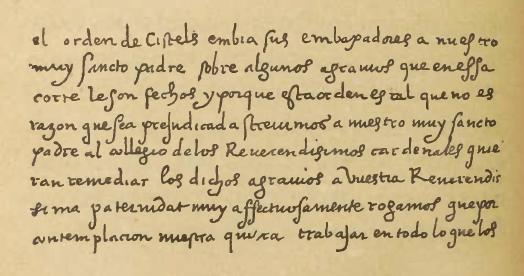 el orden de Cistels embia sus embaxadores a nuestro
muy sancto padre sobre algunos agrauios que en essa
corte le son fechos y porque esta orden es tal que no es
razon que sea prejudicada screuimos a nuestro muy sancto
padre al collegio delos Reverendisimos cardenales quie
ran remediar los dichos agrauios a vuestra Reuerendis
sima paternidat muy affectuosamente rogamos que por
contemplacion nuestra quiera trabajar en todo lo que los